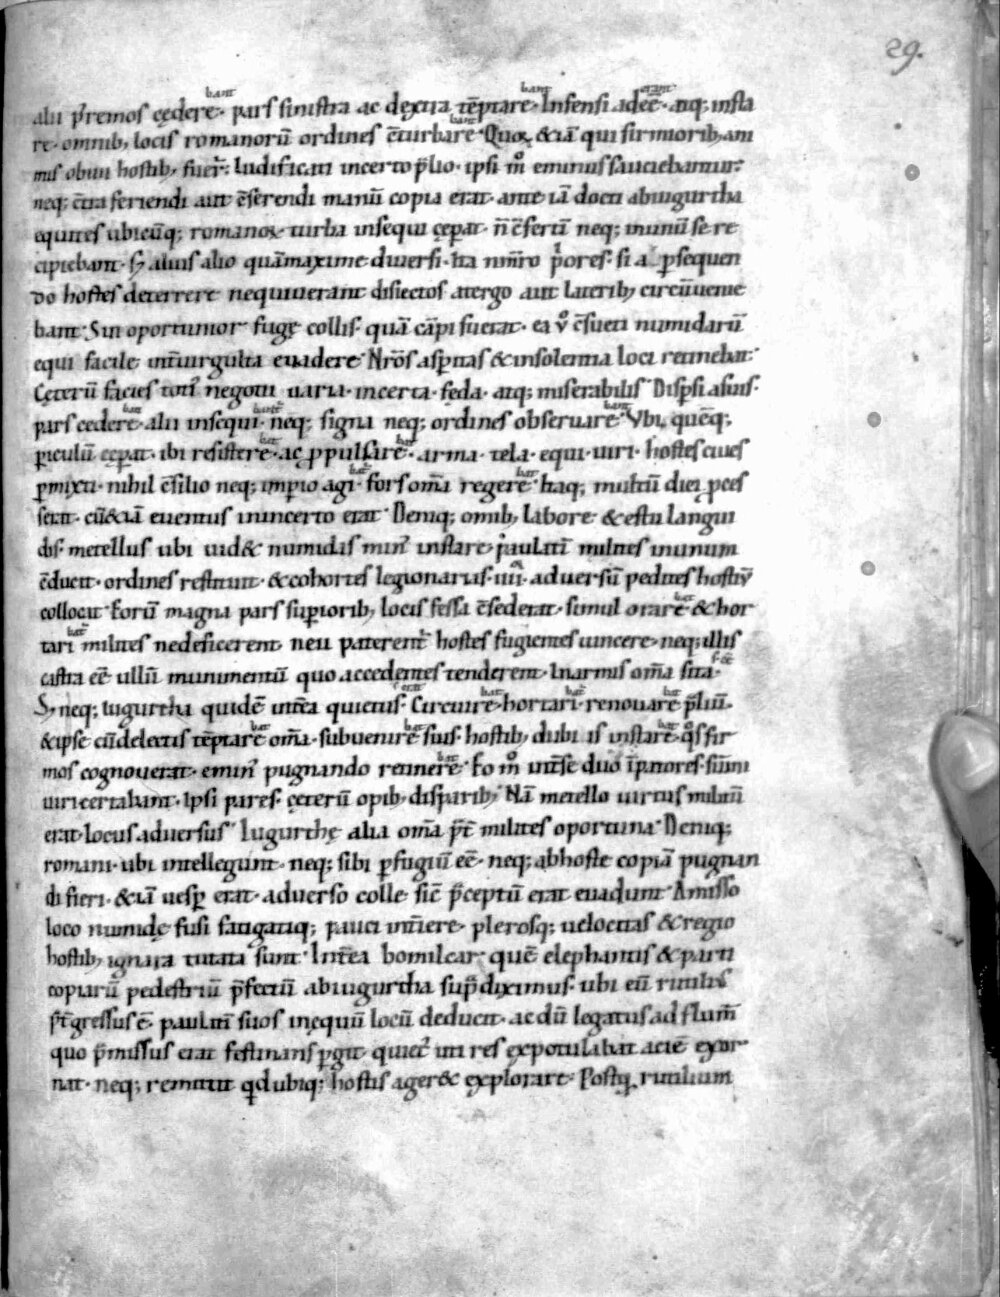 29.
alii p̄remos cędere· pars sinistra ac dextra tēptare· Infensi adeē· atq; insta
re· omnib; locis romanorū ordines ɔturbare· Quoꝝ &iā qui firmiorib; ani
mis obuii hostib; fuer̄· ludificati incerto p̄lio· ipsi m̊ eminus sauciebantur·
neq; ɔtra feriendi aut ɔserendi manū copia erat· ante iā docti abiugurtha
equites ubicūq; romanoꝝ turba insequi cęperat· n̄ ɔfertī neq; inunū se re
cipiebant· sꝫ alius alio quā maxime diuersi· Ita numero p̄ores· si a ꝑsequen
do hostes deterrere nequiuerant disiectos atergo aut laterib; circūuenie
bant· Sin oportunior fugę collis· quā cāpi fuerat· ea v̊ ɔsueti numidarū
equi facile int̄uirgulta euadere· Nr̄os asperitas & insolentia loci retinebat·
Cęterū facies toti᾽ negotii uaria· incerta· fęda· atq; miserabilis· Dispsi asuis·
pars cedere· alii insequi· neq; signa neq; ordines obseruare· Vbi quēq;
ꝑiculū cęperat· ibi resistere· ac ꝓpulsare· arma· tela· equi· uiri· hostes ciues
ꝑmixti· nihil ɔsilio neq; imꝑio agi· fors om̄a regere· Itaq; multū diei ꝓces
serat· cū &iā euentus inincerto erat· Deniq; omīb; labore & estu langui
dis· metellus ubi uid& numidas min᾽ instare· paulatī milites inunum
ɔducit· ordines restituit· & cohortes legionarias· iiii· aduersū pedites hostiū
collocat· Eorū magna pars suꝑiorib; locis fessa ɔsederat· simul orare & hor
tari milites nedeficerent· neu paterent᾽ hostes fugientes uincere· neq; illis
castra eē· ullū munimentū quo accedentes tenderent· Inarmis om̄a sita·
Sꝫ neq; iugurtha quidē int̄ea quietus· Circuire· hortari· renouare p̄liū·
& ipse cū delectis tēptare om̄a· subuenire suis· hostib; dubiis instare· q̊s fir
mos cognouerat· emin᾽ pugnando retinere· Eo m̊ int̄se duo īꝑatores· sūmi
uiri certabant· Ipsi pares· cęterū opib; disparib;· Nā metello uirtus militū
erat· locus aduersus· Iugurthę alia om̄a p̄t milites oportuna· Deniq;
romani· ubi intellegunt· neq; sibi ꝑfugiū eē· neq; abhoste copiā pugnan
di fieri· &iā uesꝑ erat· aduerso colle· sic p̄ceptū erat euadunt· Amisso
loco numidę fusi fugatiq; pauci int̄iere· plerosq; uelocitas & regio
hostib; ignara tutata sunt· Int̄ea bomilcar quē elephantis & parti
copiarū pedestriū p̄fectū abiugurtha suꝑ diximus· ubi eū rutilius
p̄t̄gressus ē· paulatī suos inequū locū deducit· ac dū legatus ad flum̄
quo p̄missus erat festinans ꝑgit· quiet᾽ uti res expotulabat aciē exor
nat· neq; remittit q̄d ubiq; hostis ager& explorare· Postꝗ rutilium